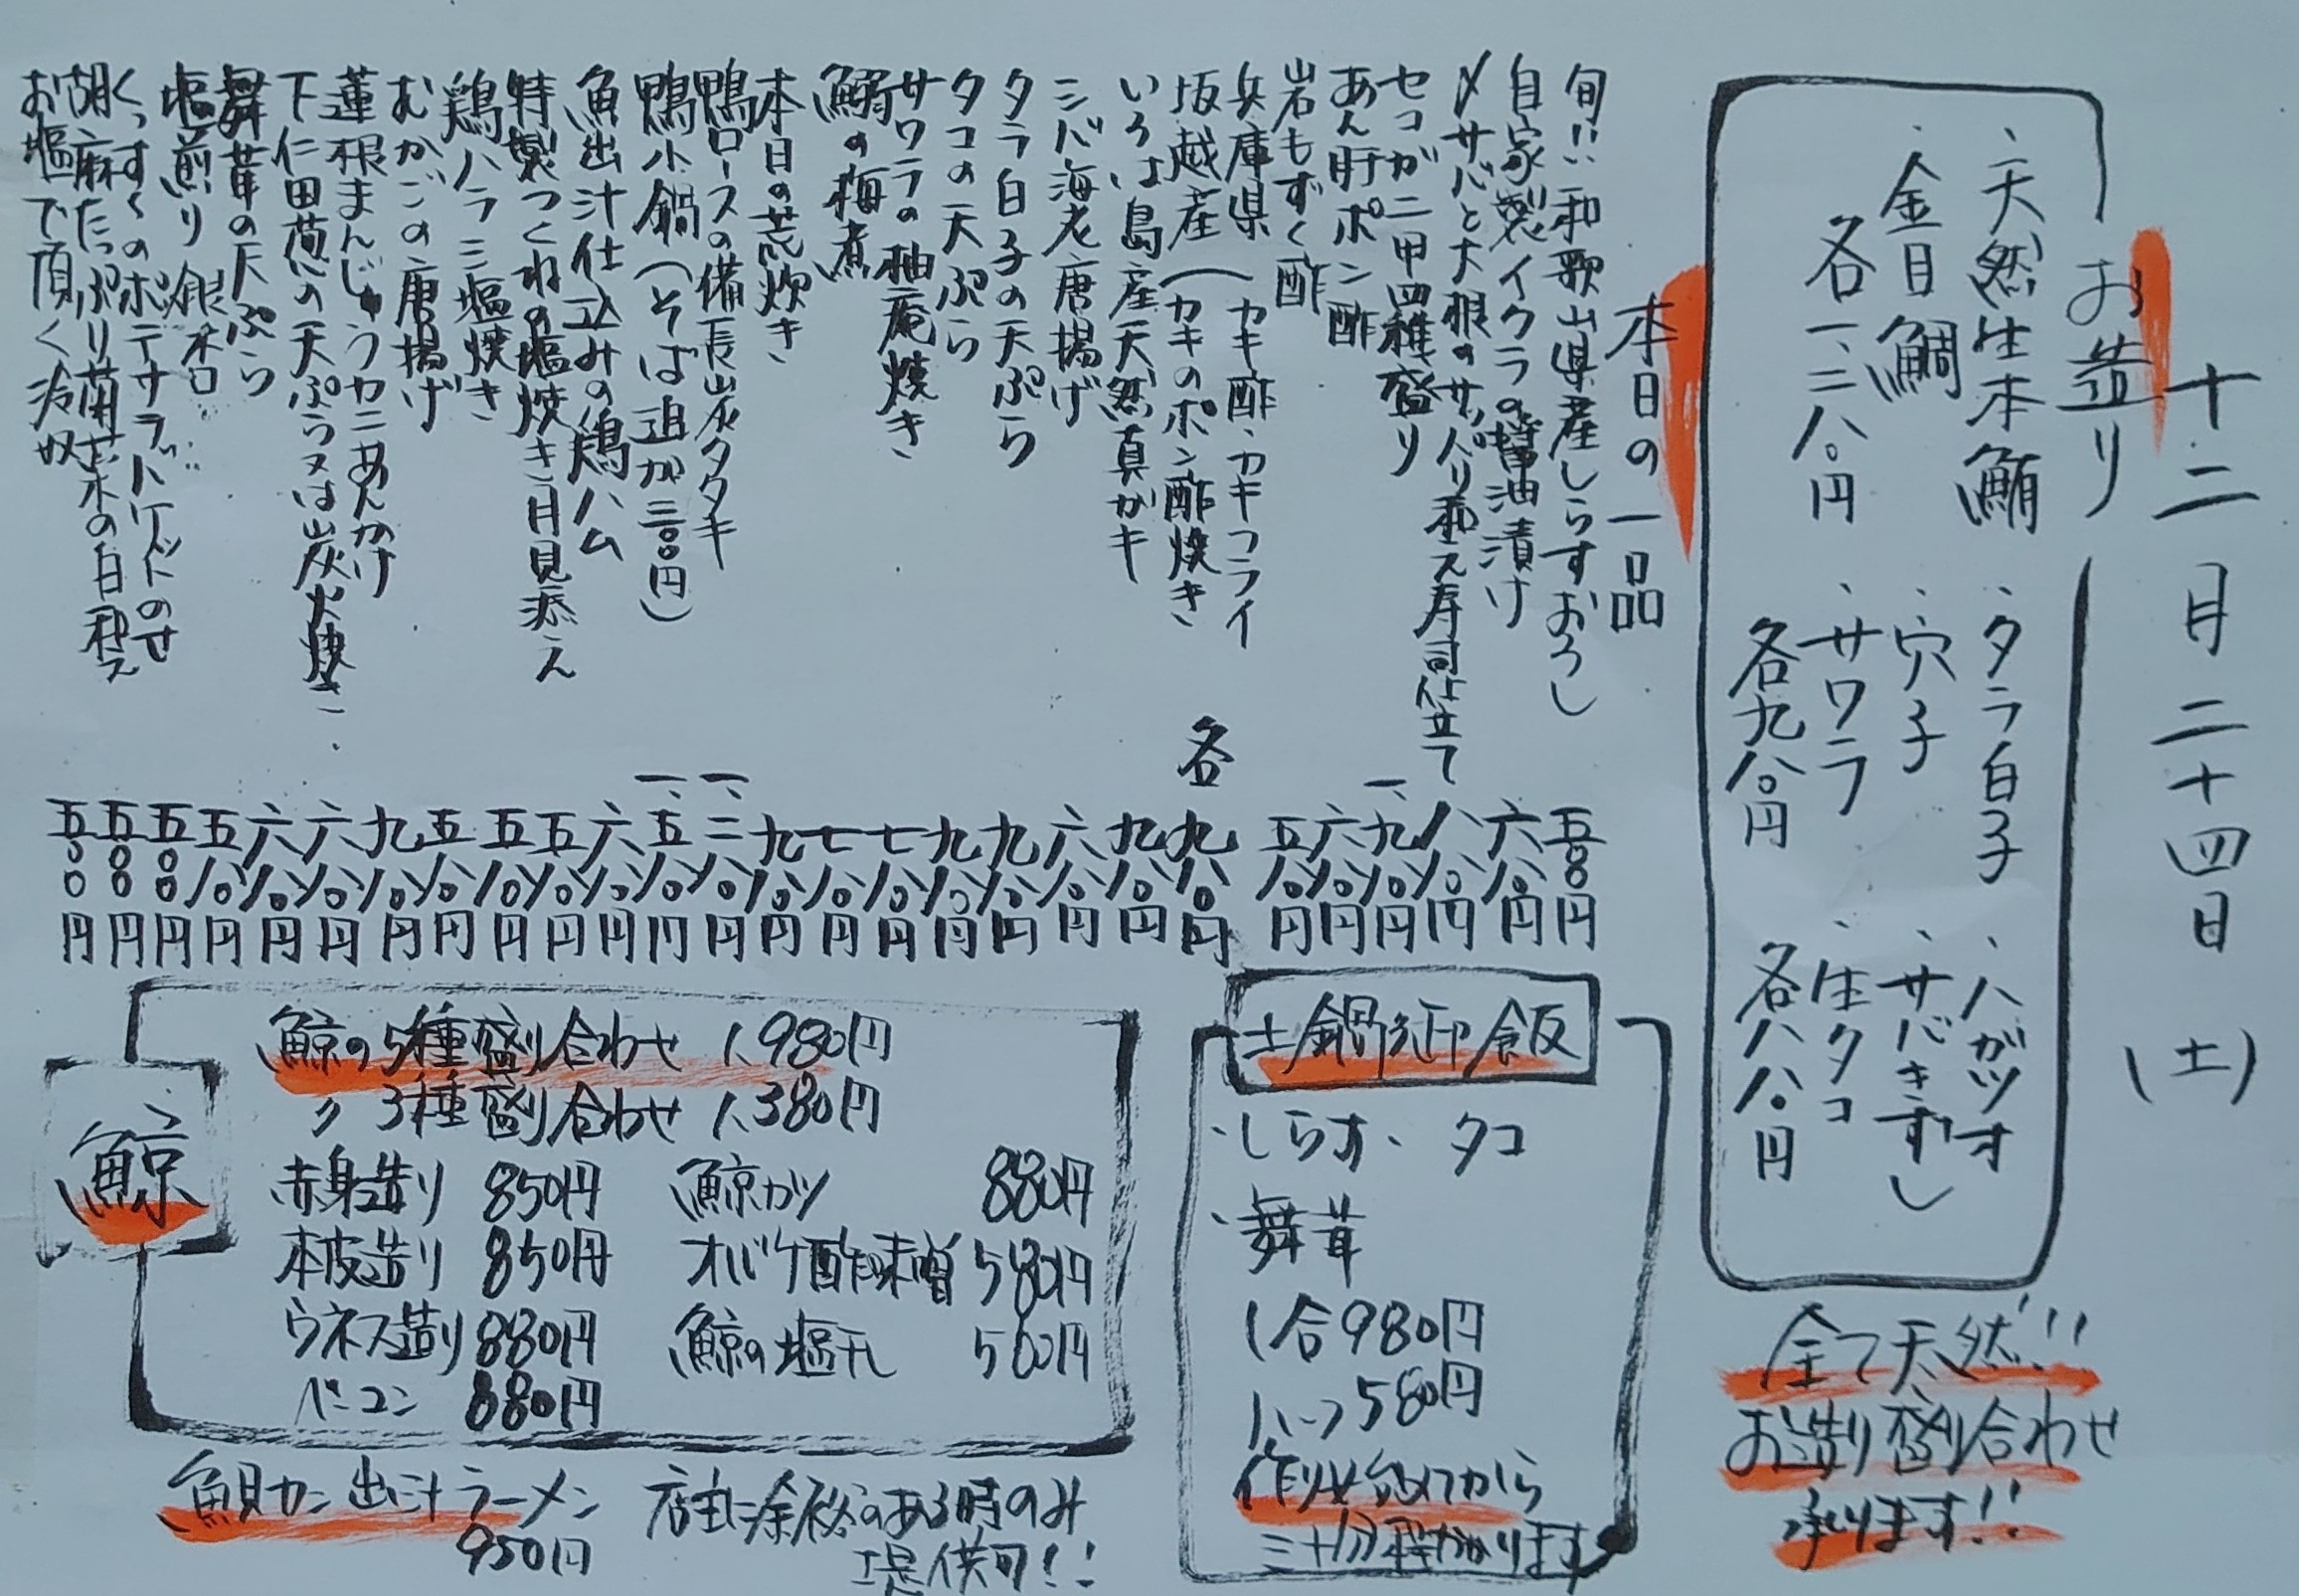 十二月二十四日(土)
お造り
・天然生本鮪
・金目鯛
各一、二八〇円
・タラ白子
・穴子
・サワラ
各九八〇円
・ハガツオ
・サバきずし
・生タコ
各八八〇円
全て天然!!
お造り盛り合わせ
承ります!!
本日の一品
旬!!和歌山県産しらすおろし 五〇〇円
自家製イクラの醤油漬け 六八〇円
〆サバと大根のサッパリ和え寿司仕立て 八八〇円
セコガニ甲羅盛り 一、九八〇円
あん肝ポン酢 六八〇円
岩もずく酢 五八〇円
兵庫県(カキ酢・カキフライ
坂越産(カキのポン酢焼き 各九八〇円
いろは島産天然真ガキ 九八〇円
シバ海老唐揚げ 六八〇円
タラ白子の天ぷら 九八〇円
タコの天ぷら 九八〇円
サワラの柚庵焼き 七八〇円
鰯の梅煮 七八〇円
本日の荒炊き 九八〇円
鴨ロースの備長炭タタキ 一、二八〇円
鴨小鍋(そば追加三〇〇円) 一、五八〇円
魚出汁仕込みの鶏ハム 六八〇円
特製つくねの塩焼き月見添え 五八〇円
鶏ハラミ塩焼き 五八〇円
むかごの唐揚げ 五八〇円
蓮根まんじゅうカニあんかけ 九八〇円
下仁田葱の天ぷら又は炭火焼き 六八〇円
舞茸の天ぷら 六八〇円
塩煎り銀杏 五八〇円
くっすくのポテサラドリトッドのせ 五〇〇円
胡麻たっぷり菊菜の白和え 五〇〇円
お塩で頂く冷奴 五〇〇円
土鍋御飯
・しらす・タコ
・舞茸
1合980円
ハーフ580円
作り始めてから
三十分程かかります
鯨
鯨の5種盛り合わせ 1,980円
〃 3種盛り合わせ 1,380円
赤身造り 850円
本皮造り 850円
ウネス造り 880円
ベーコン 880円
鯨カツ 880円
オバケ酢味噌 580円
鯨の塩干し 500円
魚貝カニ出汁ラーメン
950円
店主に余裕のある時のみ
提供可!!